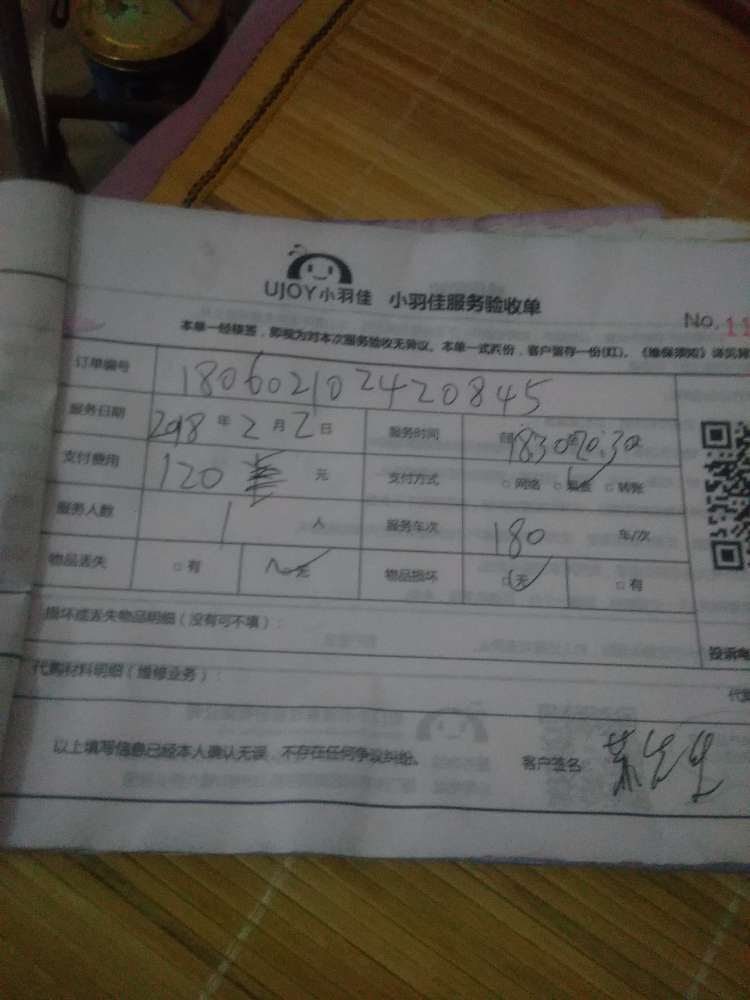 UJOY小羽佳 小羽佳服务验收单
No. 11
本单一经核签，即视为对本次服务验收无异议。本单一式两份，客户留存一份(红)。《维保须知》详见背
订单编号 180602102420845
服务日期 2018 年 2 月 2 日 服务时间 1830 20:30
支付费用 120 元 支付方式 □网络 □现金 □转账
服务人数 1 人 服务车次 180 车/次
物品丢失 □有 □无 物品损坏 □无 □有
损坏或丢失物品明细（没有可不填）：
投诉电
代购材料明细（维修业务）：
代购
以上填写信息已经本人确认无误，不存在任何争议纠纷。 客户签名 苏先生